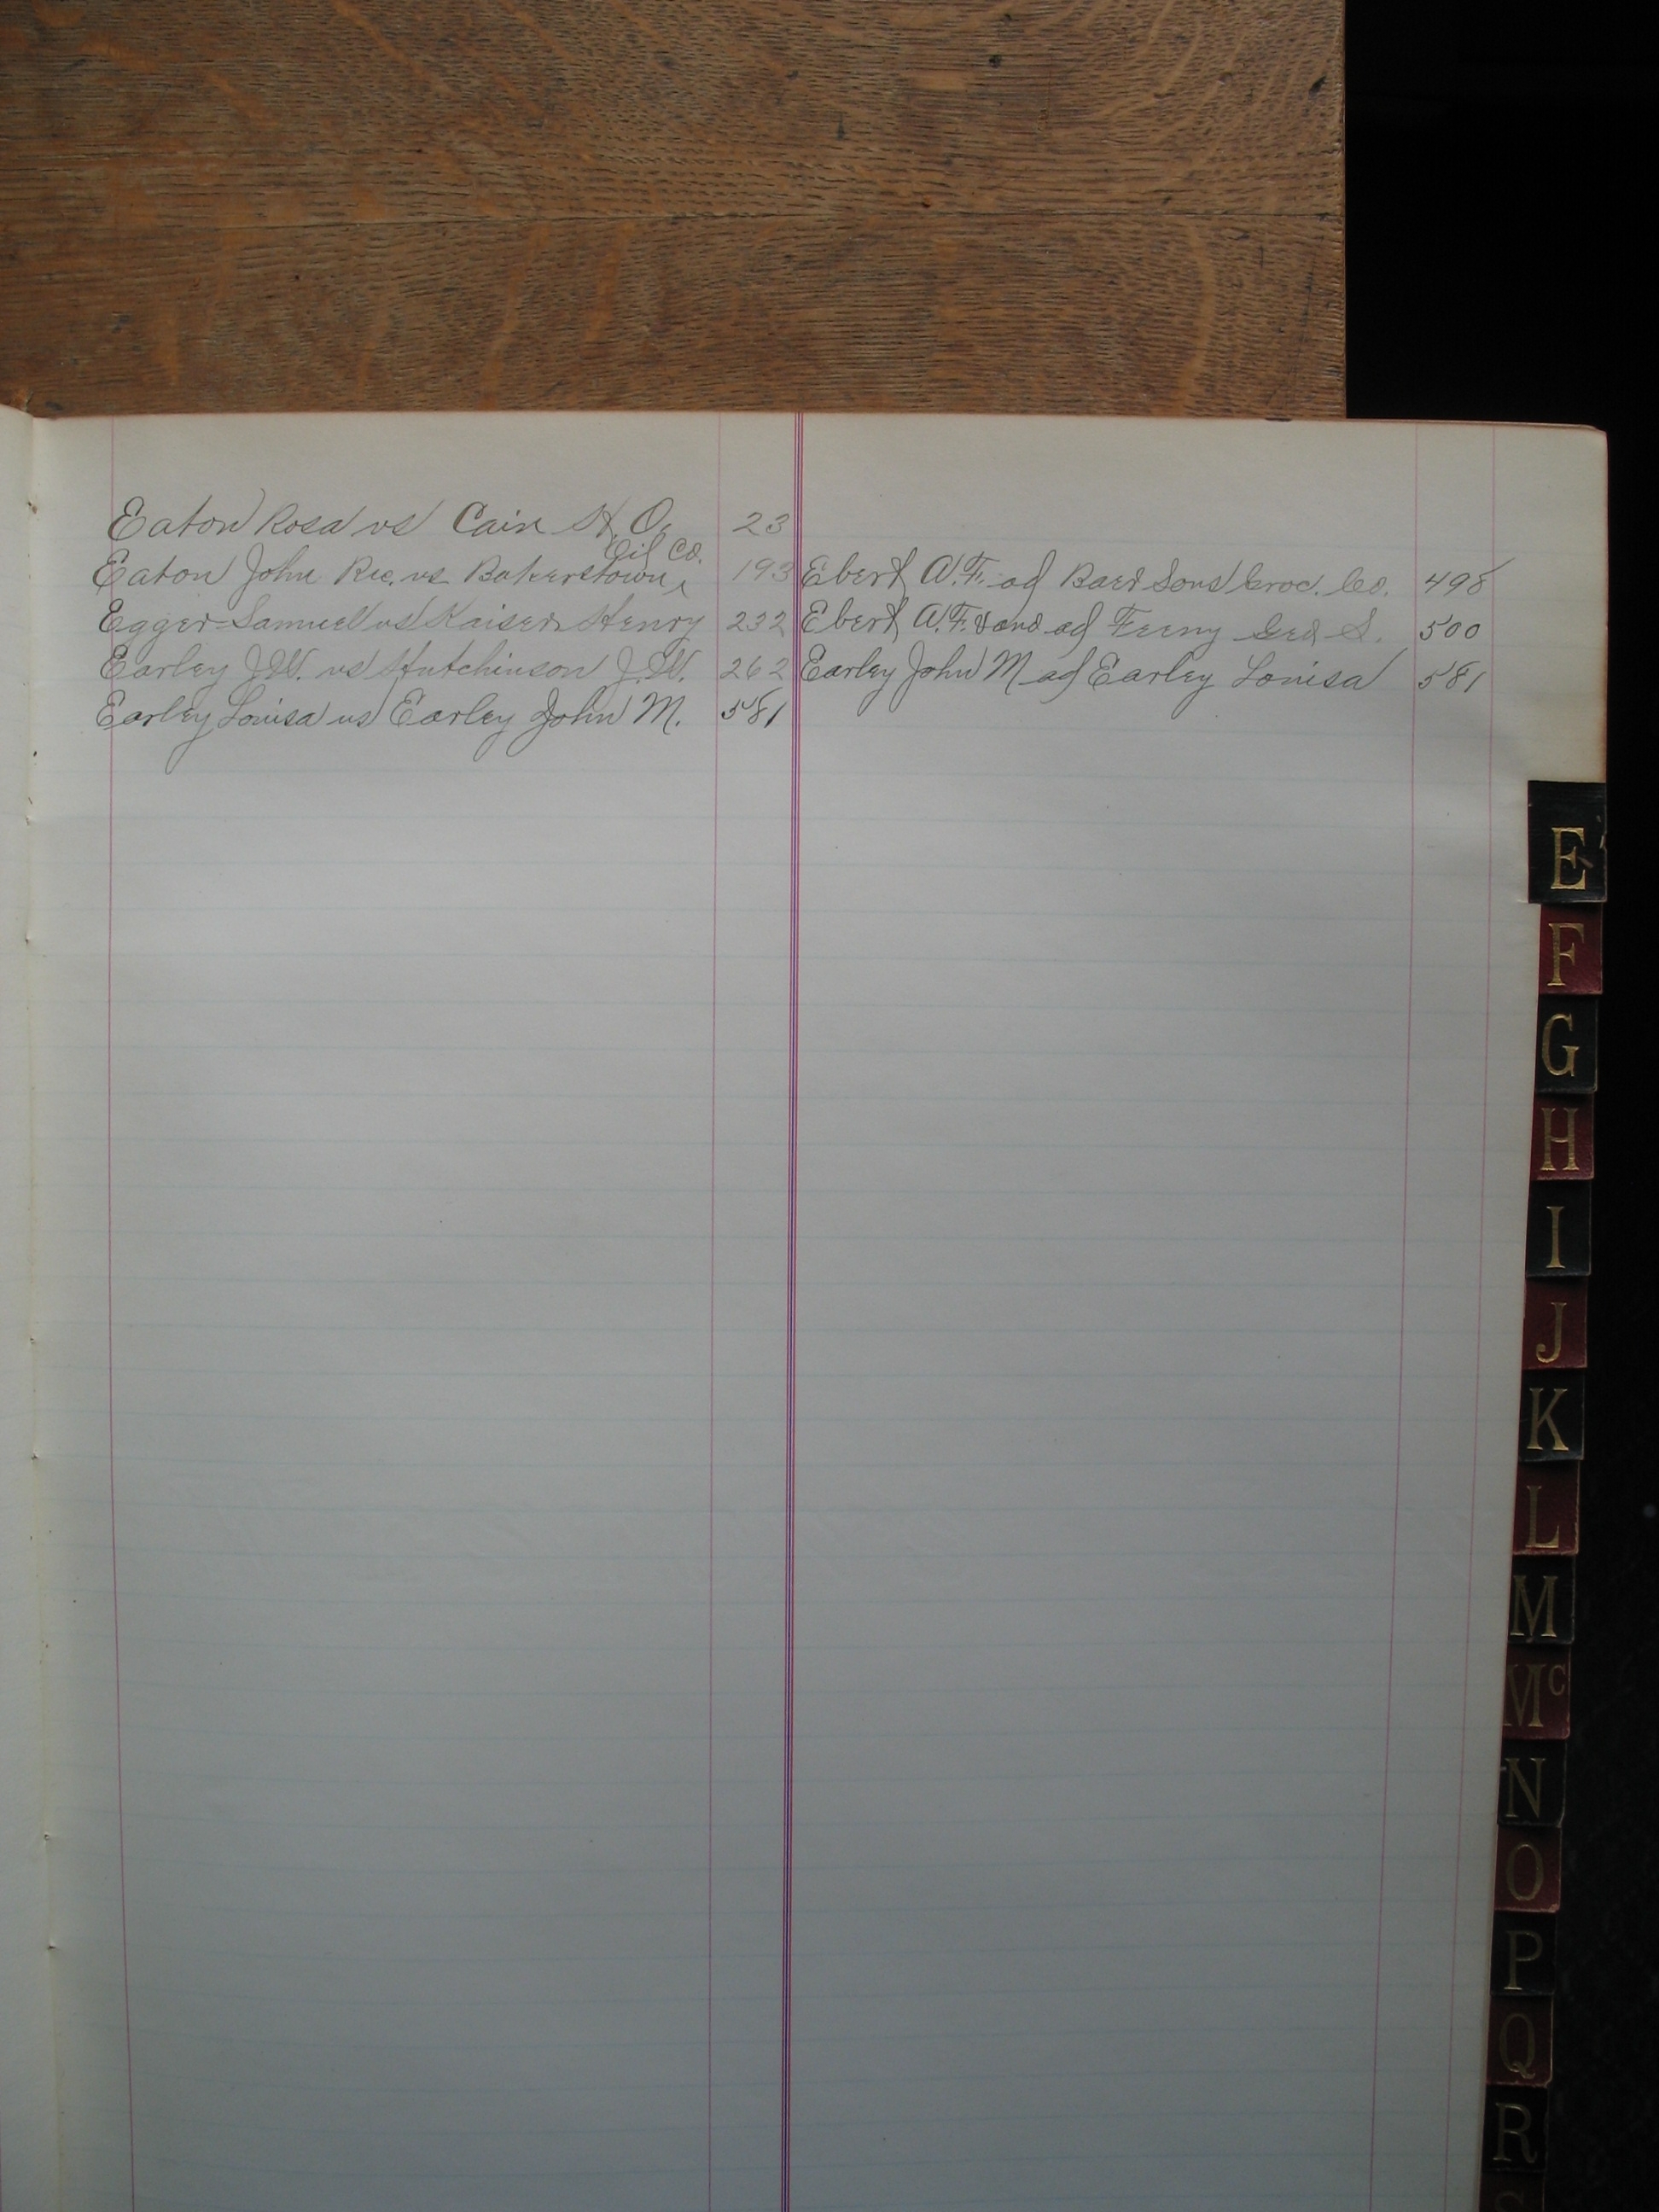 Eaton Rosa vs Cain H. O. 23
Oil Co.
Eaton John Rec. vs Bakerstown ‸ 193
Egger Samuel vs Kaiser Henry 232
Earley J.W. vs Hutchinson J.W. 262
Earley Louisa vs Earley John M. 581
Ebert A.F. ad Baer Sons Groc. Co. 498
Ebert A.F. & ad Feeny Geo S. 500
Earley John M ad Earley Louisa 581
E
F
G
H
I
J
K
L
M
Mc
N
O
P
Q
R